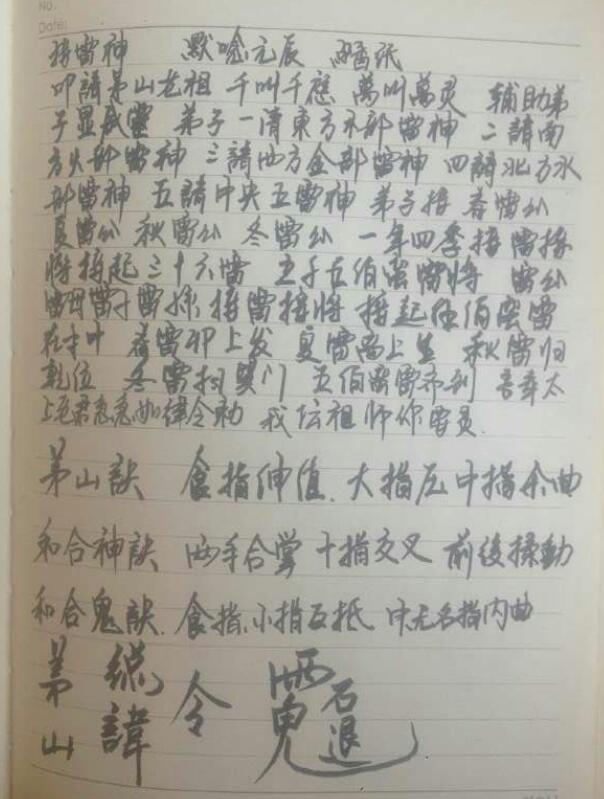 No.
Date:
接雷神 默唸元辰 焼香纸
叩請茅山老祖 千叫千應 萬叫萬灵 輔助弟
子显威靈 弟子一请東方木部雷神 二請南
方火部雷神 三請西方金部雷神 四請北方水
部雷神 五請中央五雷神 弟子接 春雷公
夏雷公 秋雷公 冬雷公 一年四季接雷接
將接起三十六雷 五千五佰蛮雷將 雷公
雷母雷子雷孫 接雷接將 接起伍佰蛮雷
在手叶 春雷卯上发 夏雷上生 秋雷归
乾位 冬雷门 五佰蛮雷齐到 吾奉太
上老君急急如律令勅 我坛祖师你要灵
茅山訣 食指伸值 大指压中指余曲
和合神訣 两手合掌 十指交叉 前後揉動
和合鬼訣 食指小指互抵 中无名指内曲
茅山 總諱 令